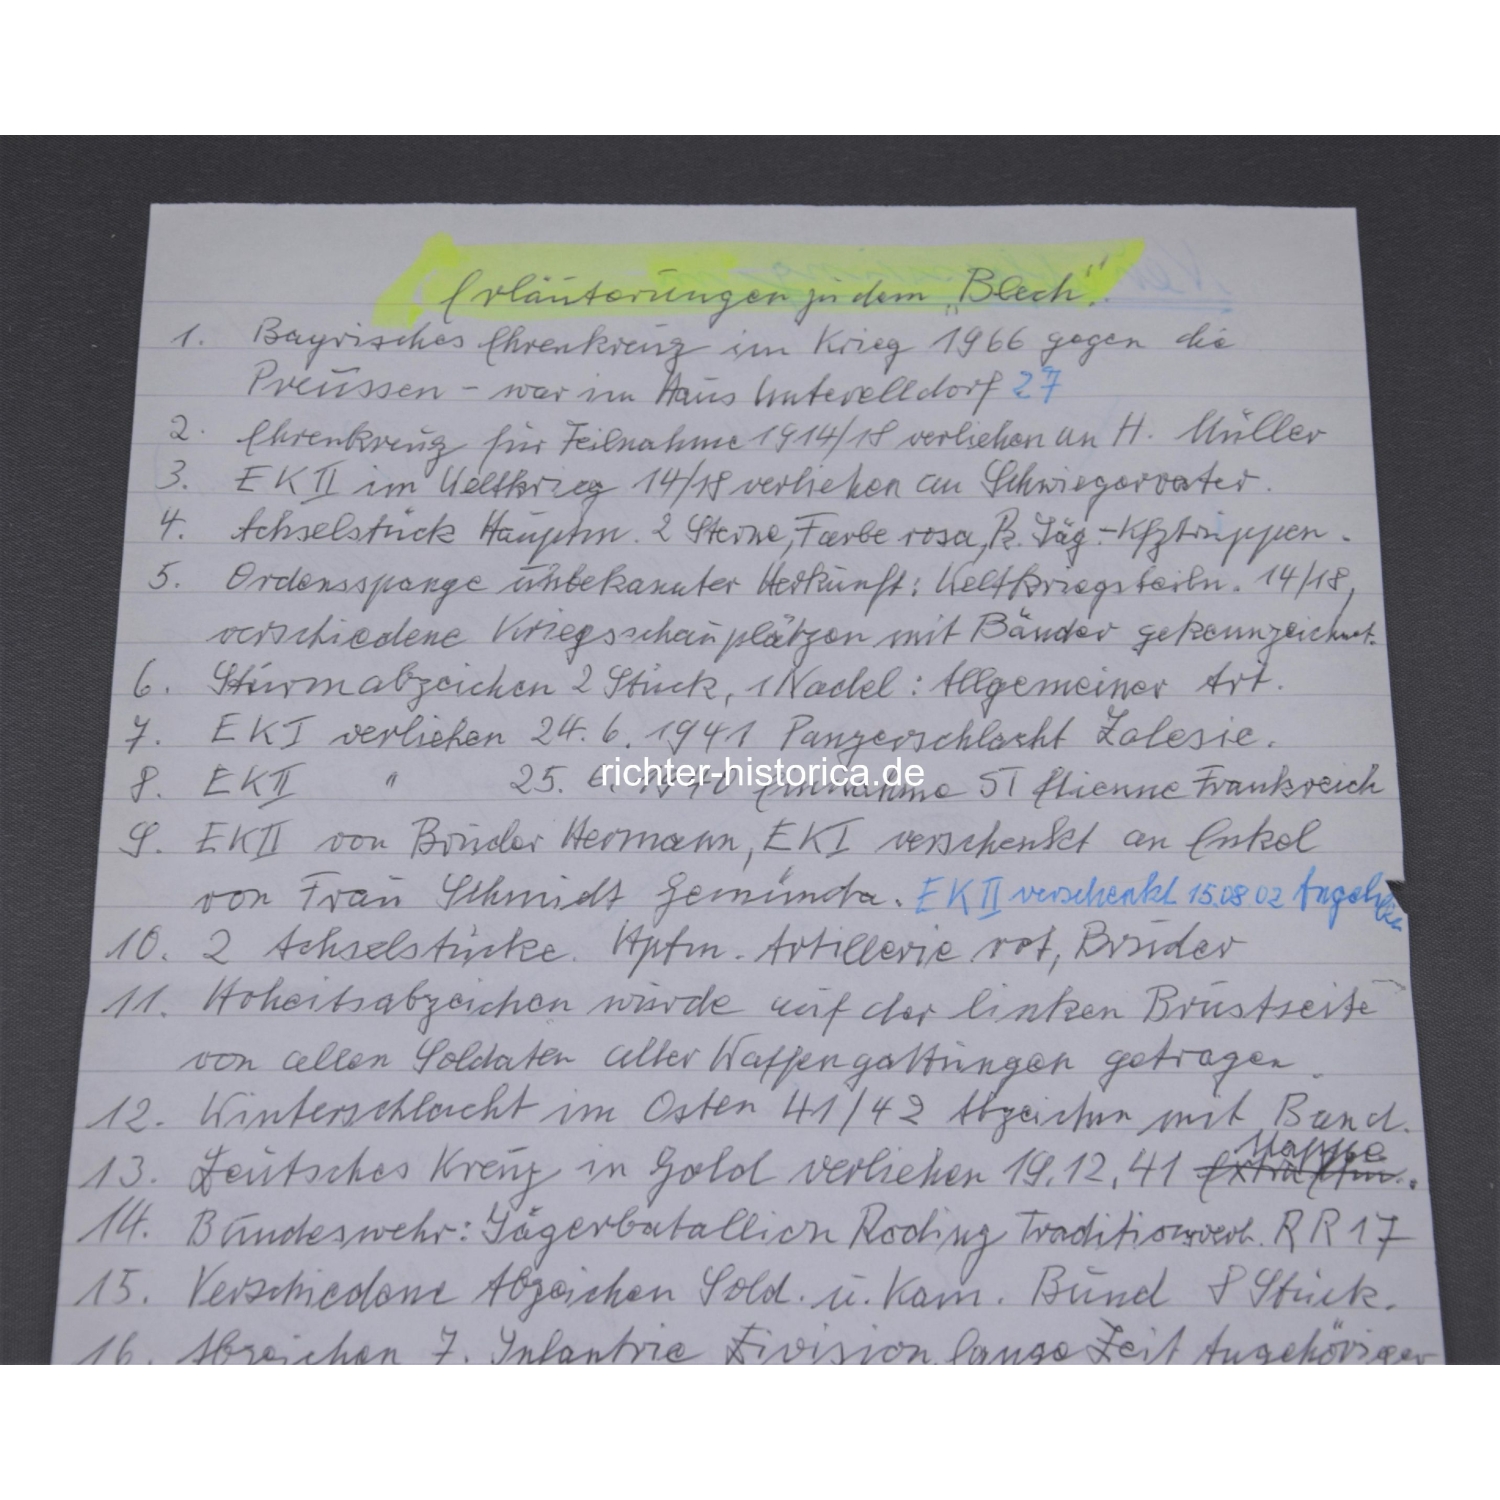 Erläuterungen zu dem „Blech".
1. Bayrisches Ehrenkreuz im Krieg 1966 gegen die
Preussen - war im Haus Unterelldorf 27
2. Ehrenkreuz für Teilnahme 1914/18 verliehen an H. Müller
3. EK II im Weltkrieg 14/18 verliehen an Schwiegervater.
4. Achselstück Hauptm. 2 Sterne, Farbe rosa, P. Jäg.-Kfztruppen.
5. Ordensspange unbekannter Herkunft: Weltkriegsteiln. 14/18,
verschiedene Kriegsschauplätzen mit Bänder gekennzeichnet.
6. Sturmabzeichen 2 Stück, 1 Nadel: Allgemeiner Art.
7. EK I verliehen 24. 6. 1941 Panzerschlacht Zalesie.
8. EK II " 25. 6. 1940 Einnahme ST Etienne Frankreich
richter-historica.de
9. EK II von Bruder Hermann, EK I verschenkt an Enkel
von Frau Schmidt Gemünda. EK II verschenkt 15.08 02
10. 2 Achselstücke. Hptm. Artillerie rot, Bruder
11. Hoheitsabzeichen wurde auf der linken Brustseite
von allen Soldaten aller Waffengattungen getragen.
12. Winterschlacht im Osten 41/42 Abzeichen mit Band.
13. Deutsches Kreuz in Gold verliehen 19.12.41 Mappe
14. Bundeswehr: Jägerbatallion Roding Traditionsverb. RR 17
15. Verschiedene Abzeichen Sold. u. Kam. Bund 8 Stück.
16. Abzeichen 7. Infantrie Division lange Zeit Angehöriger